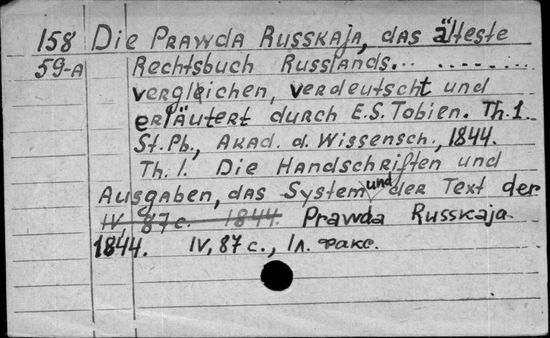 158 Die Prawda Russkaja, das älteste
59-A Rechtsbuch Russlands... .......
vergleichen, verdeutscht und
erläutert durch E.S. Tobien. Th.1.
St.Pb., Akad. d. Wissensch., 1844.
Th. 1. Die Handschriften und
Ausgaben, das System und der Text der
IV, 87 с. 1844. Prawda Russkaja.
1844. IV, 87 с., 1 л. факс.